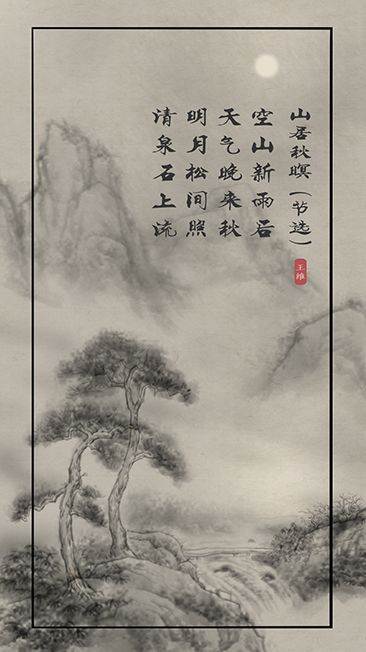 山居秋暝（节选）
王维
空山新雨后
天气晚来秋
明月松间照
清泉石上流